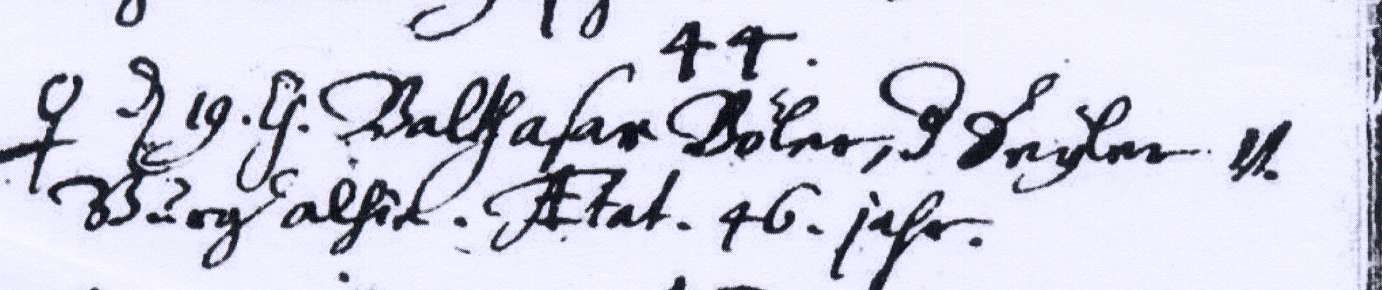 44.
♀ D 19. H. Balthasar Böler, d Seyler u.
Burg alhir. Ætat. 46. jahr.